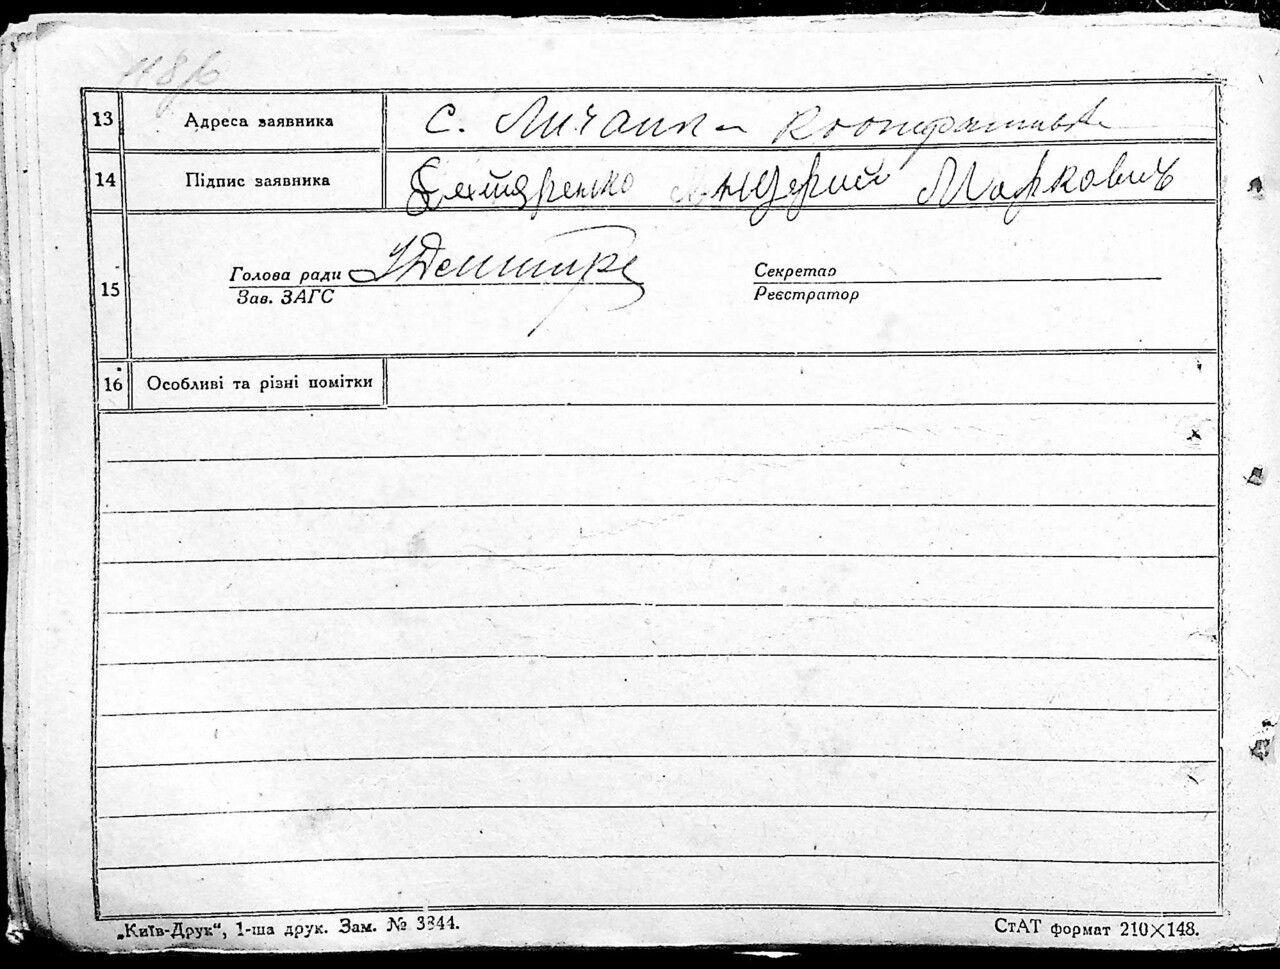 118/б
13 Адреса заявника с. Личанка кооператив
14 Підпис заявника Маркович
Голова ради
15
Зав. ЗАГС
Секретар
Реєстратор
16 Особливі та різні помітки
„Київ-Друк“, 1-ша друк. Зам. № 3344.
СтАТ формат 210×148.